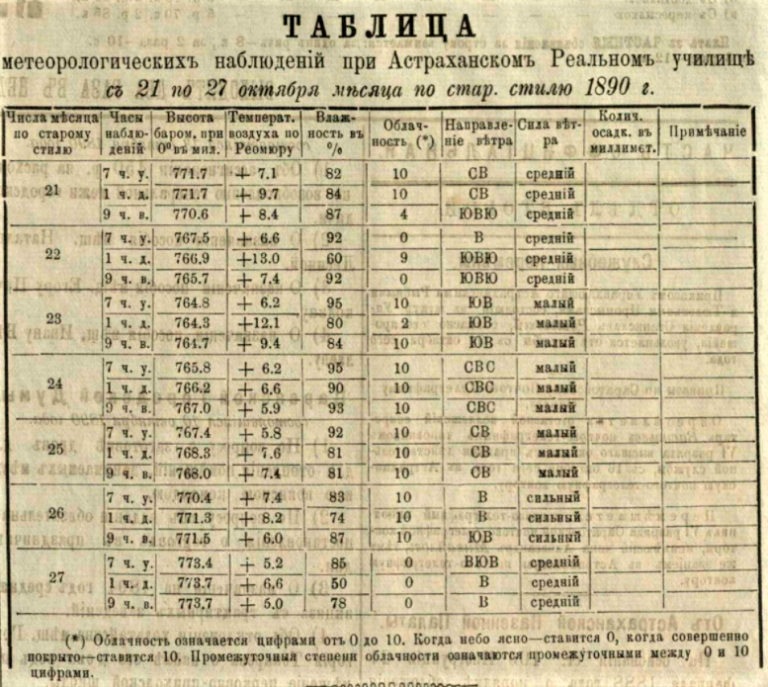 ТАБЛИЦА
метеорологическихъ наблюденій при Астраханскомъ Реальномъ училищѣ
съ 21 по 27 октября мѣсяца по стар. стилю 1890 г.
Числа мѣсяца по старому стилю | Часы наблюденій | Высота баром. при 0° въ мил. | Температ. воздуха по Реомюру | Влажность въ % | Облачность (*) | Направленіе вѣтра | Сила вѣтра | Колич. осадк. въ миллимет. | Примѣчаніе
21 | 7 ч. у. | 771.7 | + 7.1 | 82 | 10 | СВ | средній
1 ч. д. | 771.7 | + 9.7 | 84 | 10 | СВ | средній
9 ч. в. | 770.6 | + 8.4 | 87 | 4 | ЮВЮ | средній
22 | 7 ч. у. | 767.5 | + 6.6 | 92 | 0 | В | средній
1 ч. д. | 766.9 | +13.0 | 60 | 9 | ЮВЮ | средній
9 ч. в. | 765.7 | + 7.4 | 92 | 0 | ЮВЮ | средній
23 | 7 ч. у. | 764.8 | + 6.2 | 95 | 10 | ЮВ | малый
1 ч. д. | 764.3 | +12.1 | 80 | 2 | ЮВ | малый
9 ч. в. | 764.7 | + 9.4 | 84 | 10 | ЮВ | малый
24 | 7 ч. у. | 765.8 | + 6.2 | 95 | 10 | СВС | малый
1 ч. д. | 766.2 | + 6.6 | 90 | 10 | СВС | малый
9 ч. в. | 767.0 | + 5.9 | 93 | 10 | СВС | малый
25 | 7 ч. у. | 767.4 | + 5.8 | 92 | 10 | СВ | малый
1 ч. д. | 768.3 | + 7.6 | 81 | 10 | СВ | малый
9 ч. в. | 768.0 | + 7.4 | 81 | 10 | СВ | малый
26 | 7 ч. у. | 770.4 | + 7.4 | 83 | 10 | В | сильный
1 ч. д. | 771.3 | + 8.2 | 74 | 10 | В | сильный
9 ч. в. | 771.5 | + 6.0 | 87 | 10 | ЮВ | сильный
27 | 7 ч. у. | 773.4 | + 5.2 | 85 | 0 | ВЮВ | средній
1 ч. д. | 773.7 | + 6.6 | 50 | 0 | В | средній
9 ч. в. | 773.7 | + 5.0 | 78 | 0 | В | средній
(*) Облачность означается цифрами отъ 0 до 10. Когда небо ясно—ставится 0, когда совершенно
покрыто—ставится 10. Промежуточныя степени облачности означаются промежуточными между 0 и 10
цифрами.